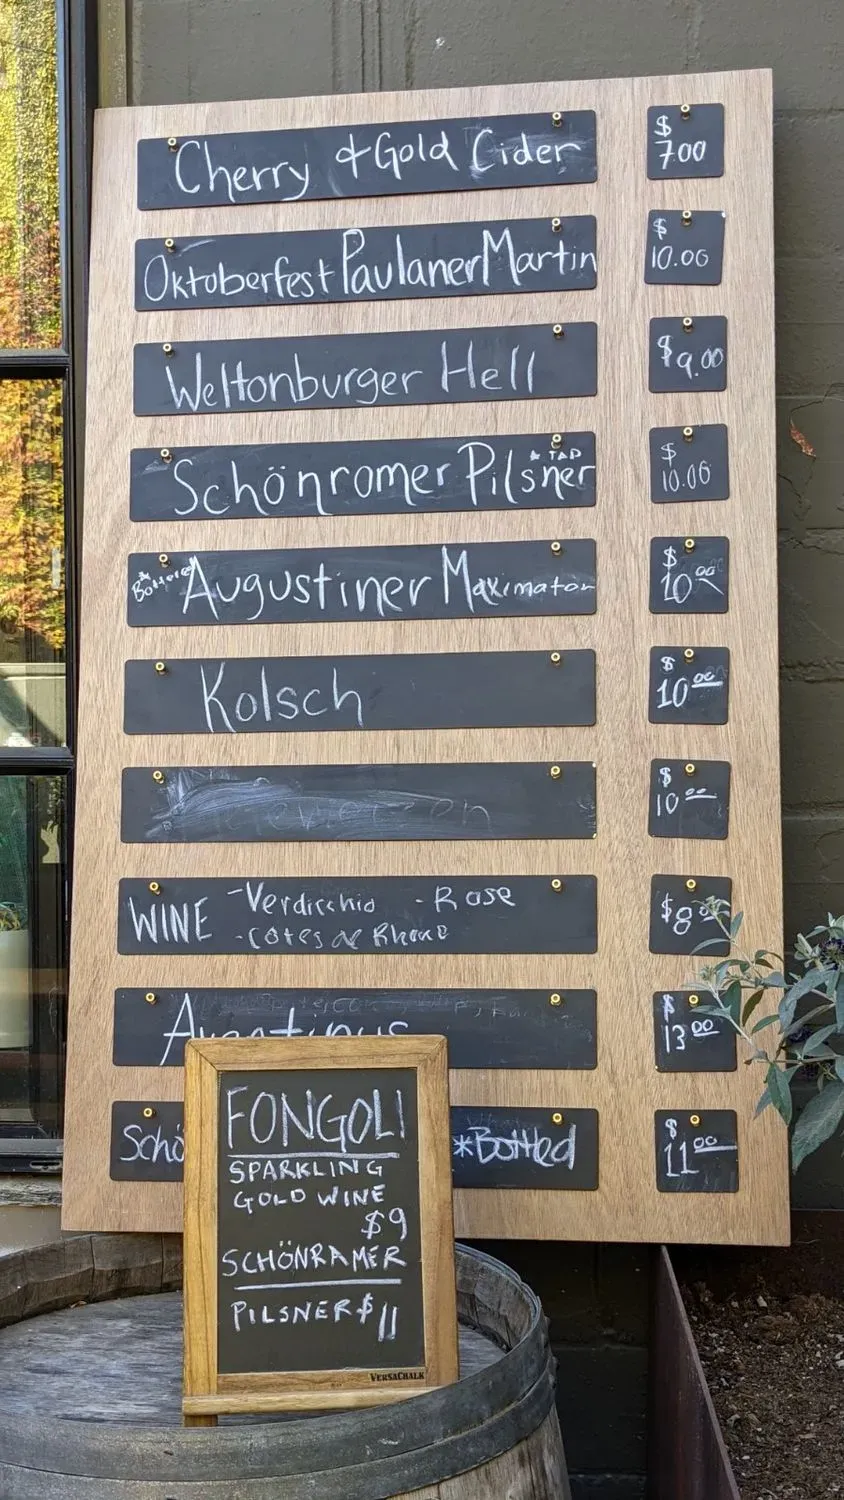 Cherry & Gold Cider
$
7.00
Oktoberfest Paulaner Martin
$
10.00
Weltonburger Hell
$9.00
* TAP
Schönromer Pilsner
$
10.00
*
Bottled
Augustiner Maximator
$
10.00
Kolsch
$
10.00
$
10.00
WINE -Verdicchio - Rose
-Cotes de Rhone
$8.00
Aventinus
$
13.00
Schö
*Bottled
$
11.00
FONGOLI
SPARKLING
GOLD WINE
$9
SCHÖNRAMER
PILSNER $11
VERSACHALK